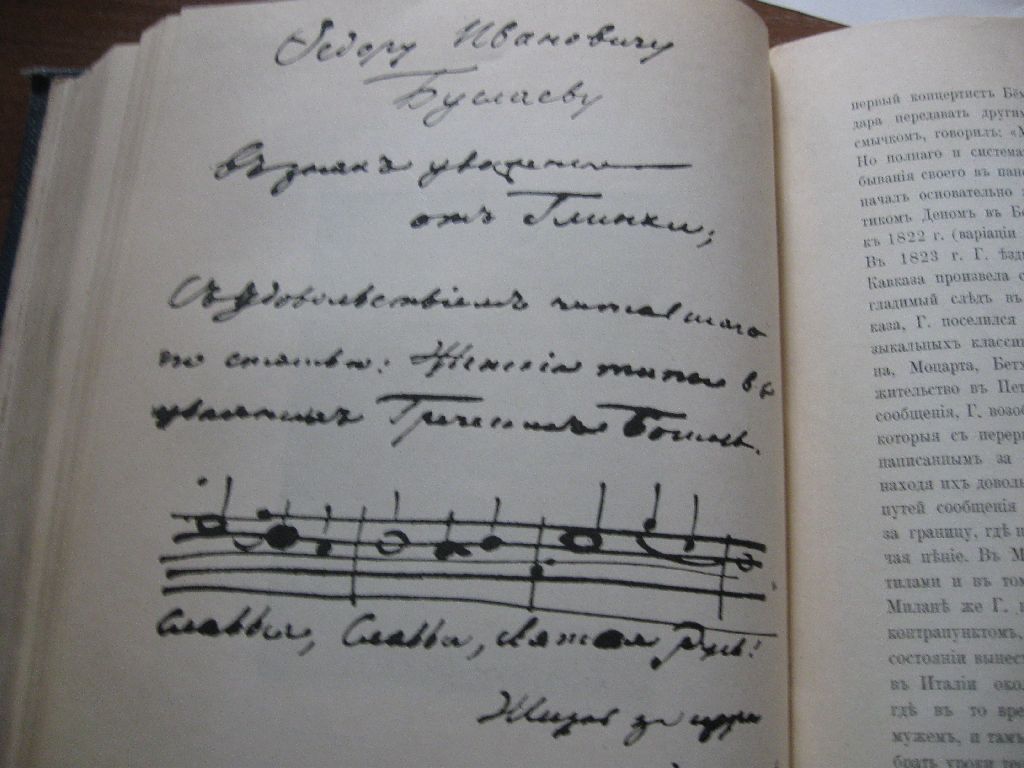 Ѳедору Ивановичу
Буслаеву
Въ знакъ уваженія
отъ Глинки,
Съ удовольствіемъ читавшаго
статьи: Женскіе типы въ
Греческихъ
Славься, Славься, Святая Русь!
Жизнь за Царя
первый концертистъ Бём
дара передавать другим
смычкомъ, говорилъ: «М
Но полнаго и система
быванія своего въ панс
началъ основательно
тикомъ Деномъ въ Бе
къ 1822 г. (варіаціи
Въ 1823 г. Г. ѣзди
Кавказа произвела с
гладимый слѣдъ въ
каза, Г. поселился
зыкальныхъ классик
на, Моцарта, Бетх
жительство въ Пет
сообщенія, Г. возоб
которыя съ перер
написаннымъ за
находя ихъ доволь
путей сообщенія
за границу, гдѣ н
чая пѣніе. Въ М
тилами и въ том
Миланѣ же Г. н
контрапунктомъ,
состояніи вынест
въ Италіи око
гдѣ въ то вре
мужемъ, и тамъ
брать уроки тео